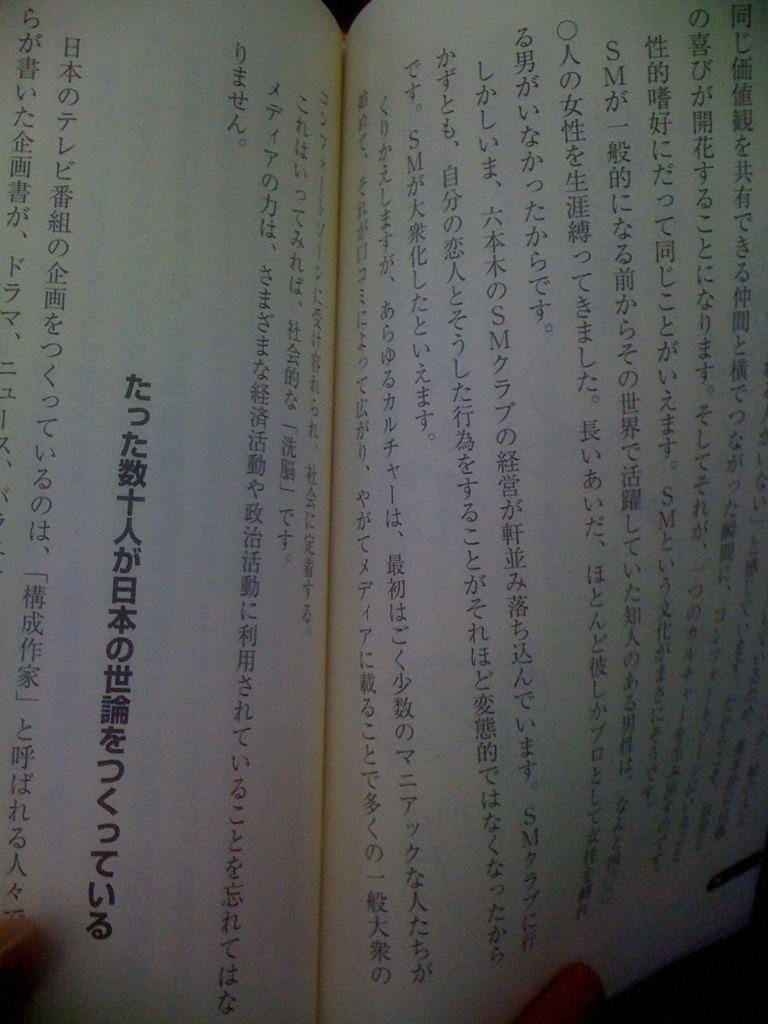 同じ価値観を共有できる仲間と横でつながった瞬間に、コンフォートゾーン
の喜びが開花することになります。そしてそれが、一つのカルチャーを生み出すのです。
性的嗜好にだって同じことがいえます。SMという文化がまさにそうです。
SMが一般的になる前からその世界で活躍していた知人のある男性は、なんと
〇人の女性を生涯縛ってきました。長いあいだ、ほとんど彼しかプロとして女性を縛れ
る男がいなかったからです。
しかしいま、六本木のSMクラブの経営が軒並み落ち込んでいます。SMクラブに行
かずとも、自分の恋人とそうした行為をすることがそれほど変態的ではなくなったから
です。SMが大衆化したといえます。
くりかえしますが、あらゆるカルチャーは、最初はごく少数のマニアックな人たちが
始めて、それが口コミによって広がり、やがてメディアに載ることで多くの一般大衆の
コンフォートゾーンに受け容れられ、社会に定着する。
これはいってみれば、社会的な「洗脳」です。
メディアの力は、さまざまな経済活動や政治活動に利用されていることを忘れてはな
りません。
たった数十人が日本の世論をつくっている
日本のテレビ番組の企画をつくっているのは、「構成作家」と呼ばれる人々で
らが書いた企画書が、ドラマ、ニュース、バラ